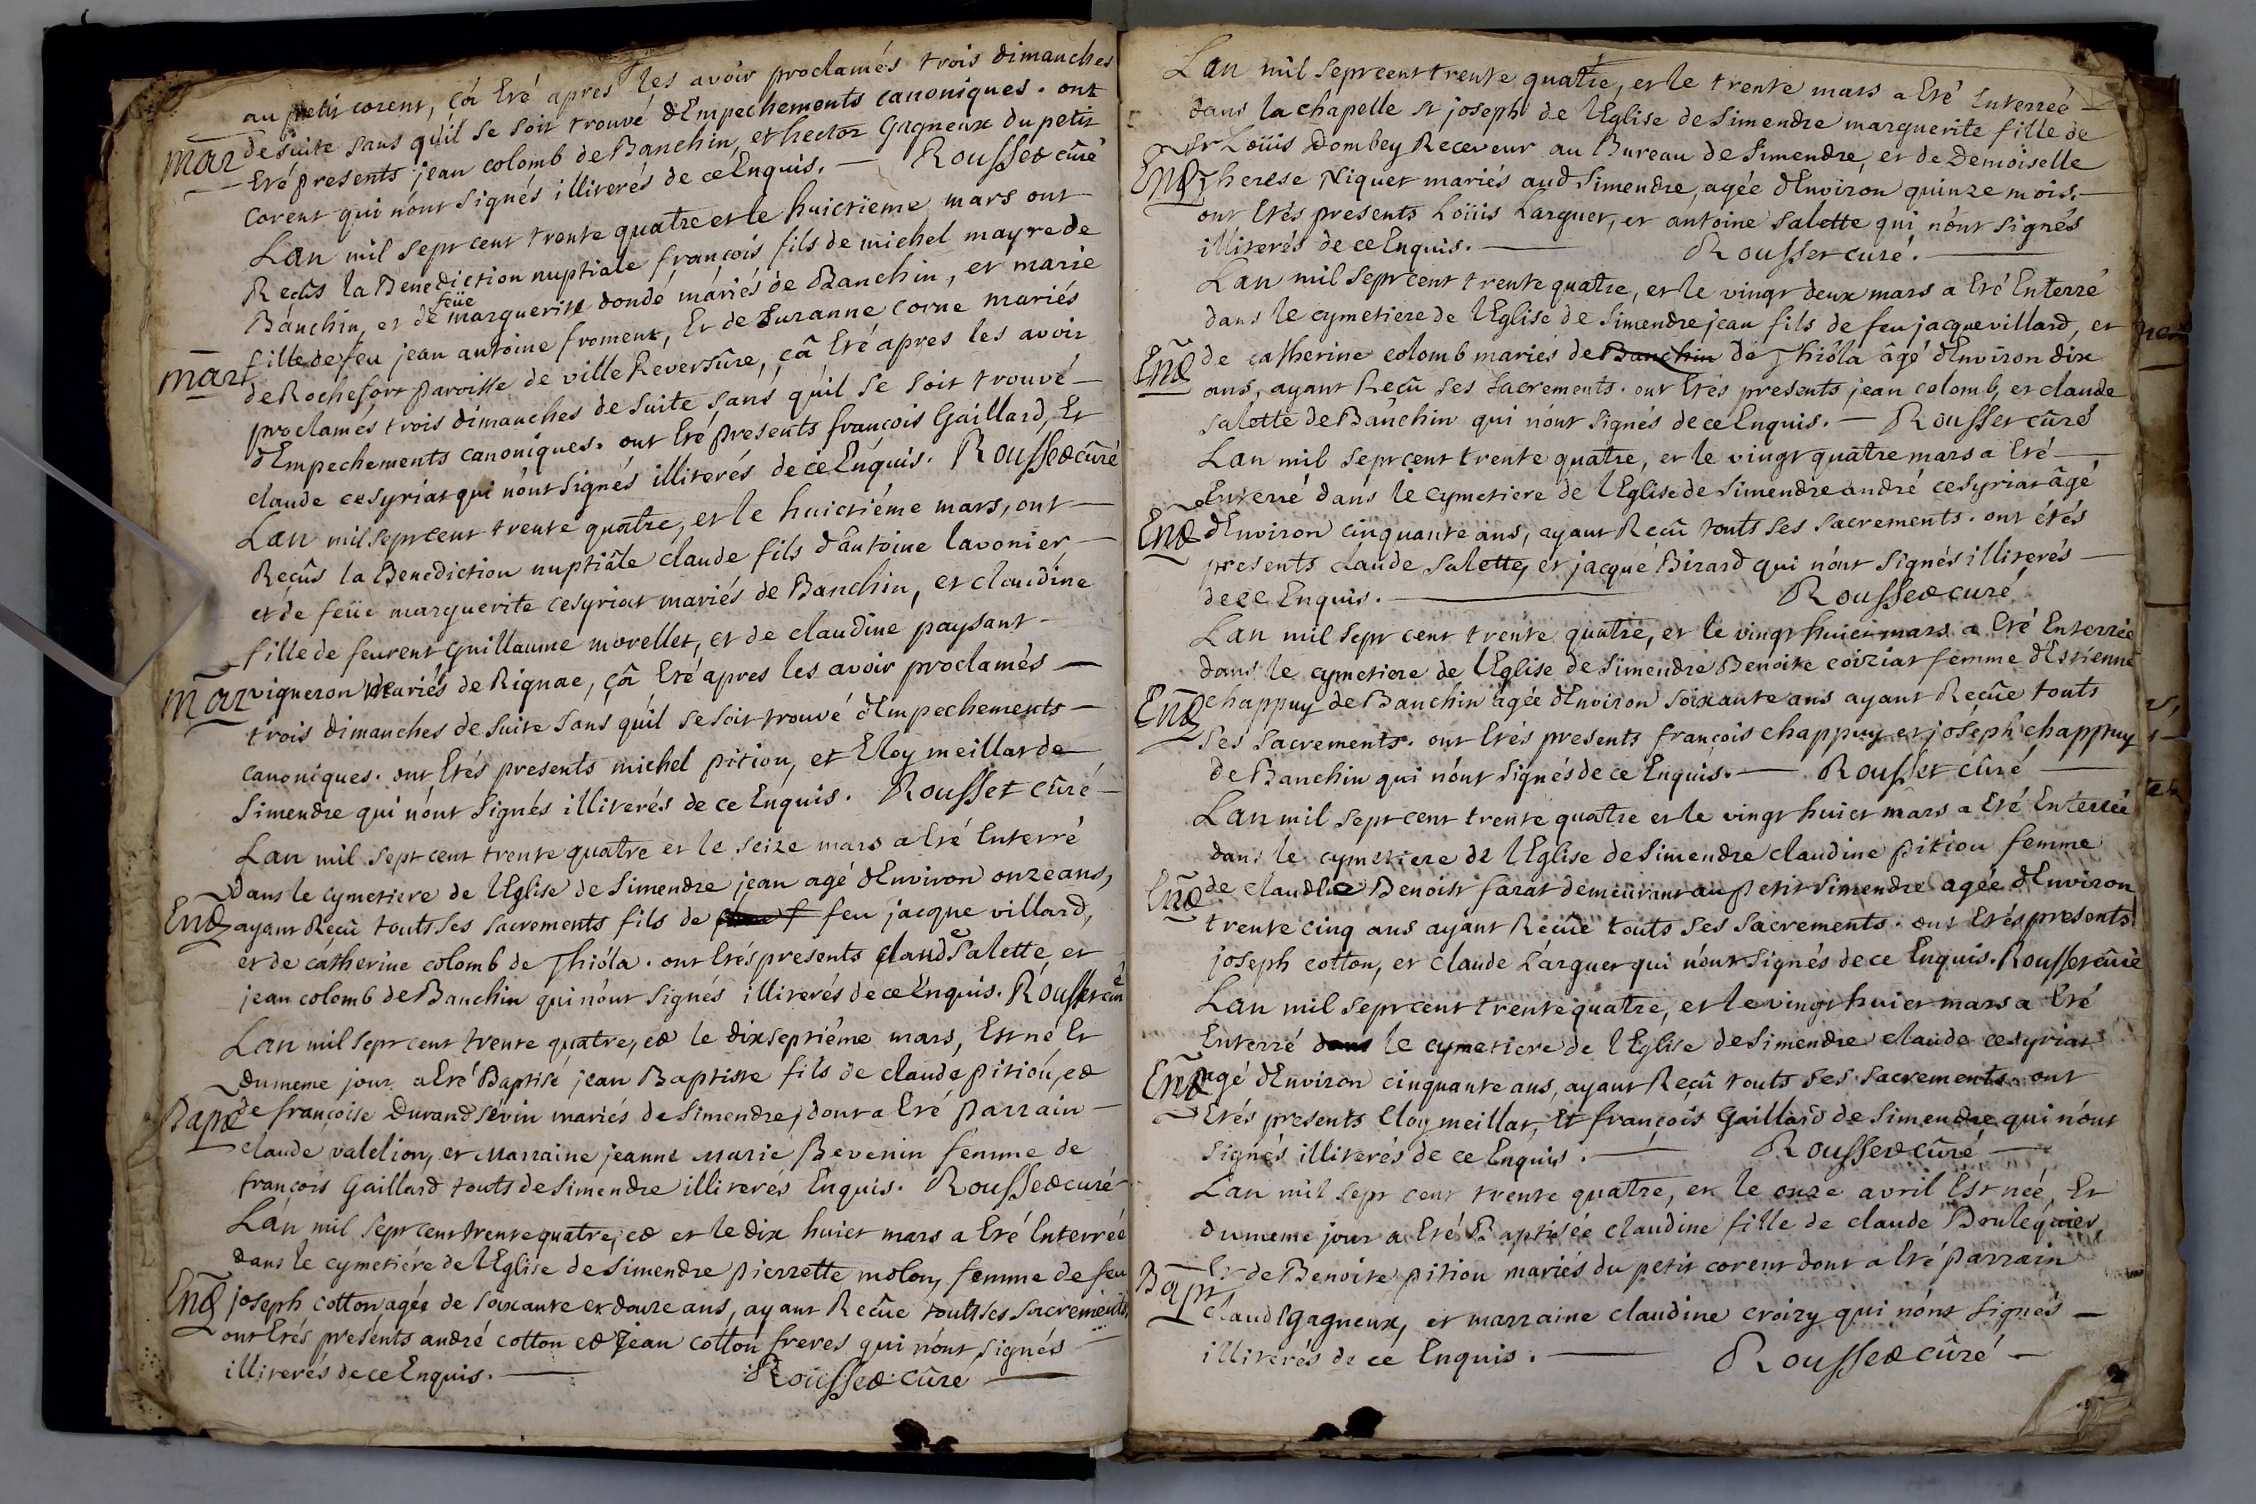 au petit corent, çâ Eté apres les avoir proclamés trois dimanches
mar de suite sans qu'il se soit trouvé d'Empechements canoniques. ont
Eté presents jean colomb de Banchin, et hector Gagneux du petit
corent qui n'ont signés illiterés de ce Enquis. — Rousset cûré
Lan mil sept cent trente quatre et le huictieme mars ont
Reçûs la Benediction nuptiale françois fils de michel mayre de
Banchin, et de feüe marguerite dondé mariés de Banchin, et marie
mar fille de feu jean antoine froment, Et de Suzanne corne mariés
de Rochefort paroisse de ville Reversûre, çâ Eté apres les avoir
proclamés trois dimanches de suite sans qu'il se soit trouvé —
d'Empechements canoniques. ont Eté presents françois Gaillard, Et
claude cesyriat qui n'ont signés illiterés de ce Enquis. Rousset cûré
Lan mil sept cent trente quatre, et le huictiéme mars, ont —
Reçûs la Benediction nuptiâle claude fils d'antoine lavonier —
et de feüe marguerite cesyriat mariés de Banchin, et claudine
fille de feurent Guillaume morellet, et de claudine paysant —
mar vigneron mariés de Rignac, çâ Eté apres les avoir proclamés —
trois dimanches de suite sans qu'il se soit trouvé d'Empechements —
canoniques. ont Etés presents michel pition, et Eloy meillar de
Simendre qui n'ont signés illiterés de ce Enquis. Rousset cûré —
Lan mil sept cent trente quatre et le seize mars a Eté Enterré
dans le cymetiere de l'Eglise de Simendre jean agé d'Environ onze ans,
End ayant Reçû touts ses sacrements fils de feu jacque villard,
et de catherine colomb de Thióla. ont Etés presents claude salette, et
jean colomb de Banchin qui n'ont signés illiterés de ce Enquis. Rousset cûré
Lan mil sept cent trente quatre, et le dixseptiême mars, Est né Et
du meme jour a Eté Baptisé jean Baptiste fils de claude pition, et
Bapt de françoise Durand sévin mariés de Simendre, dont a Eté parrain —
claude valelion, et Marraine jeanne Marie Bevenin femme de
françois Gaillard touts de Simendre illiterés Enquis. Rousset curé
Lan mil sept cent trente quatre, et et le dix huict mars a Eté Enterrée
dans le cymetiére de l'Eglise de Simendre pierrette molon, femme de feu
End joseph cotton agée de soixante et douze ans, ayant Reçûe touts ses sacrements.
ont Etés presents andré cotton et jean cotton freres qui n'ont signés —
illiterés de ce Enquis. — Rousset cûre —
Lan mil sept cent trente quatre, et le trente mars a Eté Enterreé —
dans la chapelle st joseph de l'Eglise de Simendre marguerite fille de
Sr Loüis Dombey Receveur au Bureau de Simendre, et de Demoiselle
End Therese Niquet mariés aud Simendre, agée d'Environ quinze mois. —
ont Etés presents Loüis Larguet, et antoine salette qui n'ont signés
illiterés de ce Enquis. — Rousset curé. —
Lan mil sept cent trente quatre, et le vingt deux mars a Eté Enterré
dans le cymetiere de l'Eglise de Simendre jean fils de feu jacque villard, et
End de catherine colomb mariés de Banchin de Thióla âgé d'Environ dix
ans, ayant Reçû ses sacrements. ont Etés presents jean colomb, et claude
salette de Banchin qui n'ont signés de ce Enquis. — Rousset cûré
Lan mil sept cent trente quatre, et le vingt quatre mars a Eté —
Enterré dans le cymetiere de l'Eglise de Simendre andré cesyriat âgé
End d'Environ cinquante ans, ayant Reçû touts ses sacrements. ont étés
presents claude salette, et jacque Bizard qui n'ont signés illiterés —
de ce Enquis. — Rousset curé
Lan mil sept cent trente quatre, et le vingt huict mars a Eté Enterrée
dans le cymetiere de l'Eglise de Simendre Benoite coiziat femme d'Estienne
End chappuy de Banchin agée d'Environ soixante ans ayant Reçûe touts
ses sacrements. ont Etés presents françois chappuy et joseph chappuy
de Banchin qui n'ont signés de ce Enquis. — Rousset cûré —
Lan mil sept cent trente quatre et le vingt huict mars a Eté Enterrée
dans le cymetiere de l'Eglise de Simendre claudine pition femme
End de claude Benoist farat demeurant au petit Simendre agée d'Environ
trente cinq ans ayant Reçûe touts ses sacrements. ont Etés presents
joseph cotton, et claude Larguet qui n'ont signés de ce Enquis. Rousset cûré
Lan mil sept cent trente quatre, et le vingt huict mars a Eté
Enterré dans le cymetiere de l'Eglise de Simendre claude cesyriat
End agé d'Environ cinquante ans, ayant Reçû touts ses sacrements. ont
Etés presents Eloy meillar, Et françois Gaillard de Simendre qui n'ont
signés illiterés de ce Enquis. — Rousset cûré —
Lan mil sept cent trente quatre, et le onze avril Est née, Et
du meme jour a Eté Baptisée claudine fille de claude Boulequier,
Bapt Et de Benoite pition mariés du petit corent dont a Eté parrain
claude gagneux, et marraine claudine croizy qui n'ont signés —
illiterés de ce Enquis. — Rousset cûré —